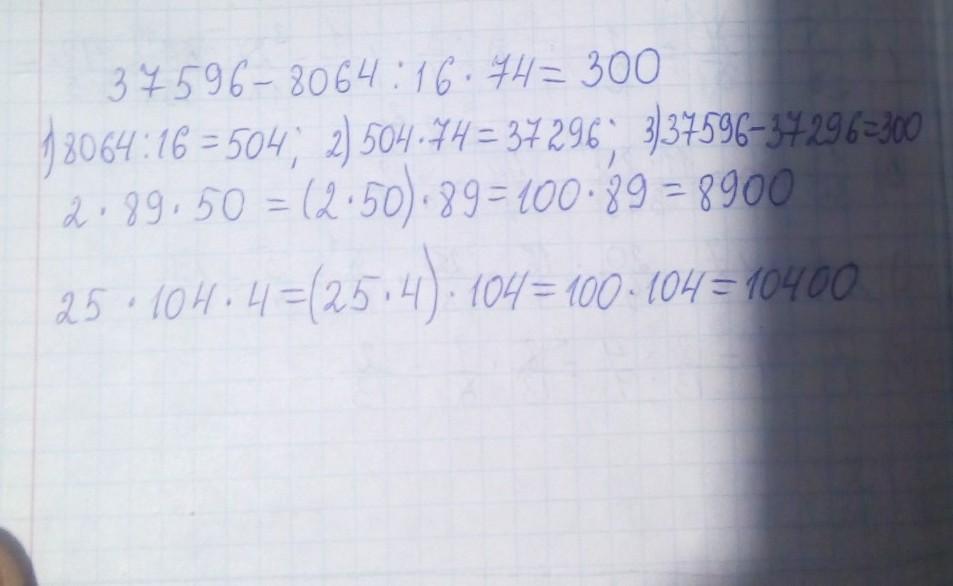 37596 - 8064 : 16 · 74 = 300
1) 8064 : 16 = 504; 2) 504 · 74 = 37296; 3) 37596 - 37296 = 300
2 · 89 · 50 = (2 · 50) · 89 = 100 · 89 = 8900
25 · 104 · 4 = (25 · 4) · 104 = 100 · 104 = 10400